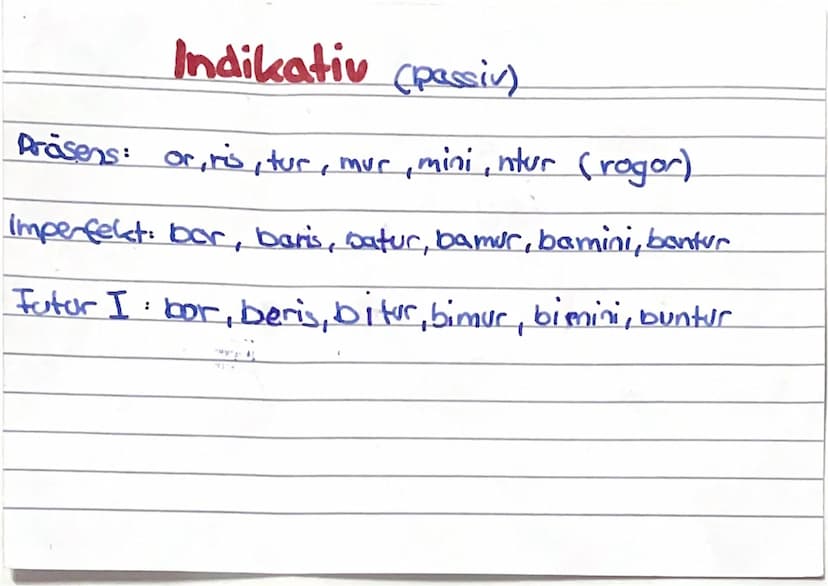 Indikativ (passiv)
Präsens: or, ris, tur, mur, mini, ntur (rogor)
Imperfekt: bar, baris, batur, bamur, bamini, bantur
Futur I: bor, beris, bitur, bimur, bimini, buntur